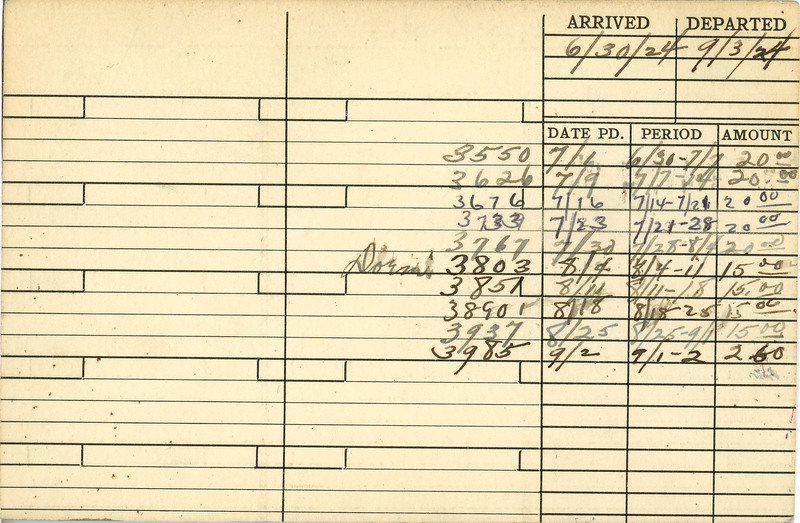 ARRIVED DEPARTED
6/30/24 9/3/24
DATE PD. PERIOD AMOUNT
3550 7/1 6/30-7/7 20.00
3626 7/9 7/7-14 20.00
3676 7/16 7/14-7/21 20.00
3733 7/23 7/21-28 20.00
3767 7/30 7/28-8/4 20.00
Dorm 3803 8/4 8/4-11 15.00
3851 8/11 8/11-18 15.00
3890 8/18 8/18-25 15.00
3937 8/25 8/25-9/1 15.00
3985 9/2 9/1-2 2.60